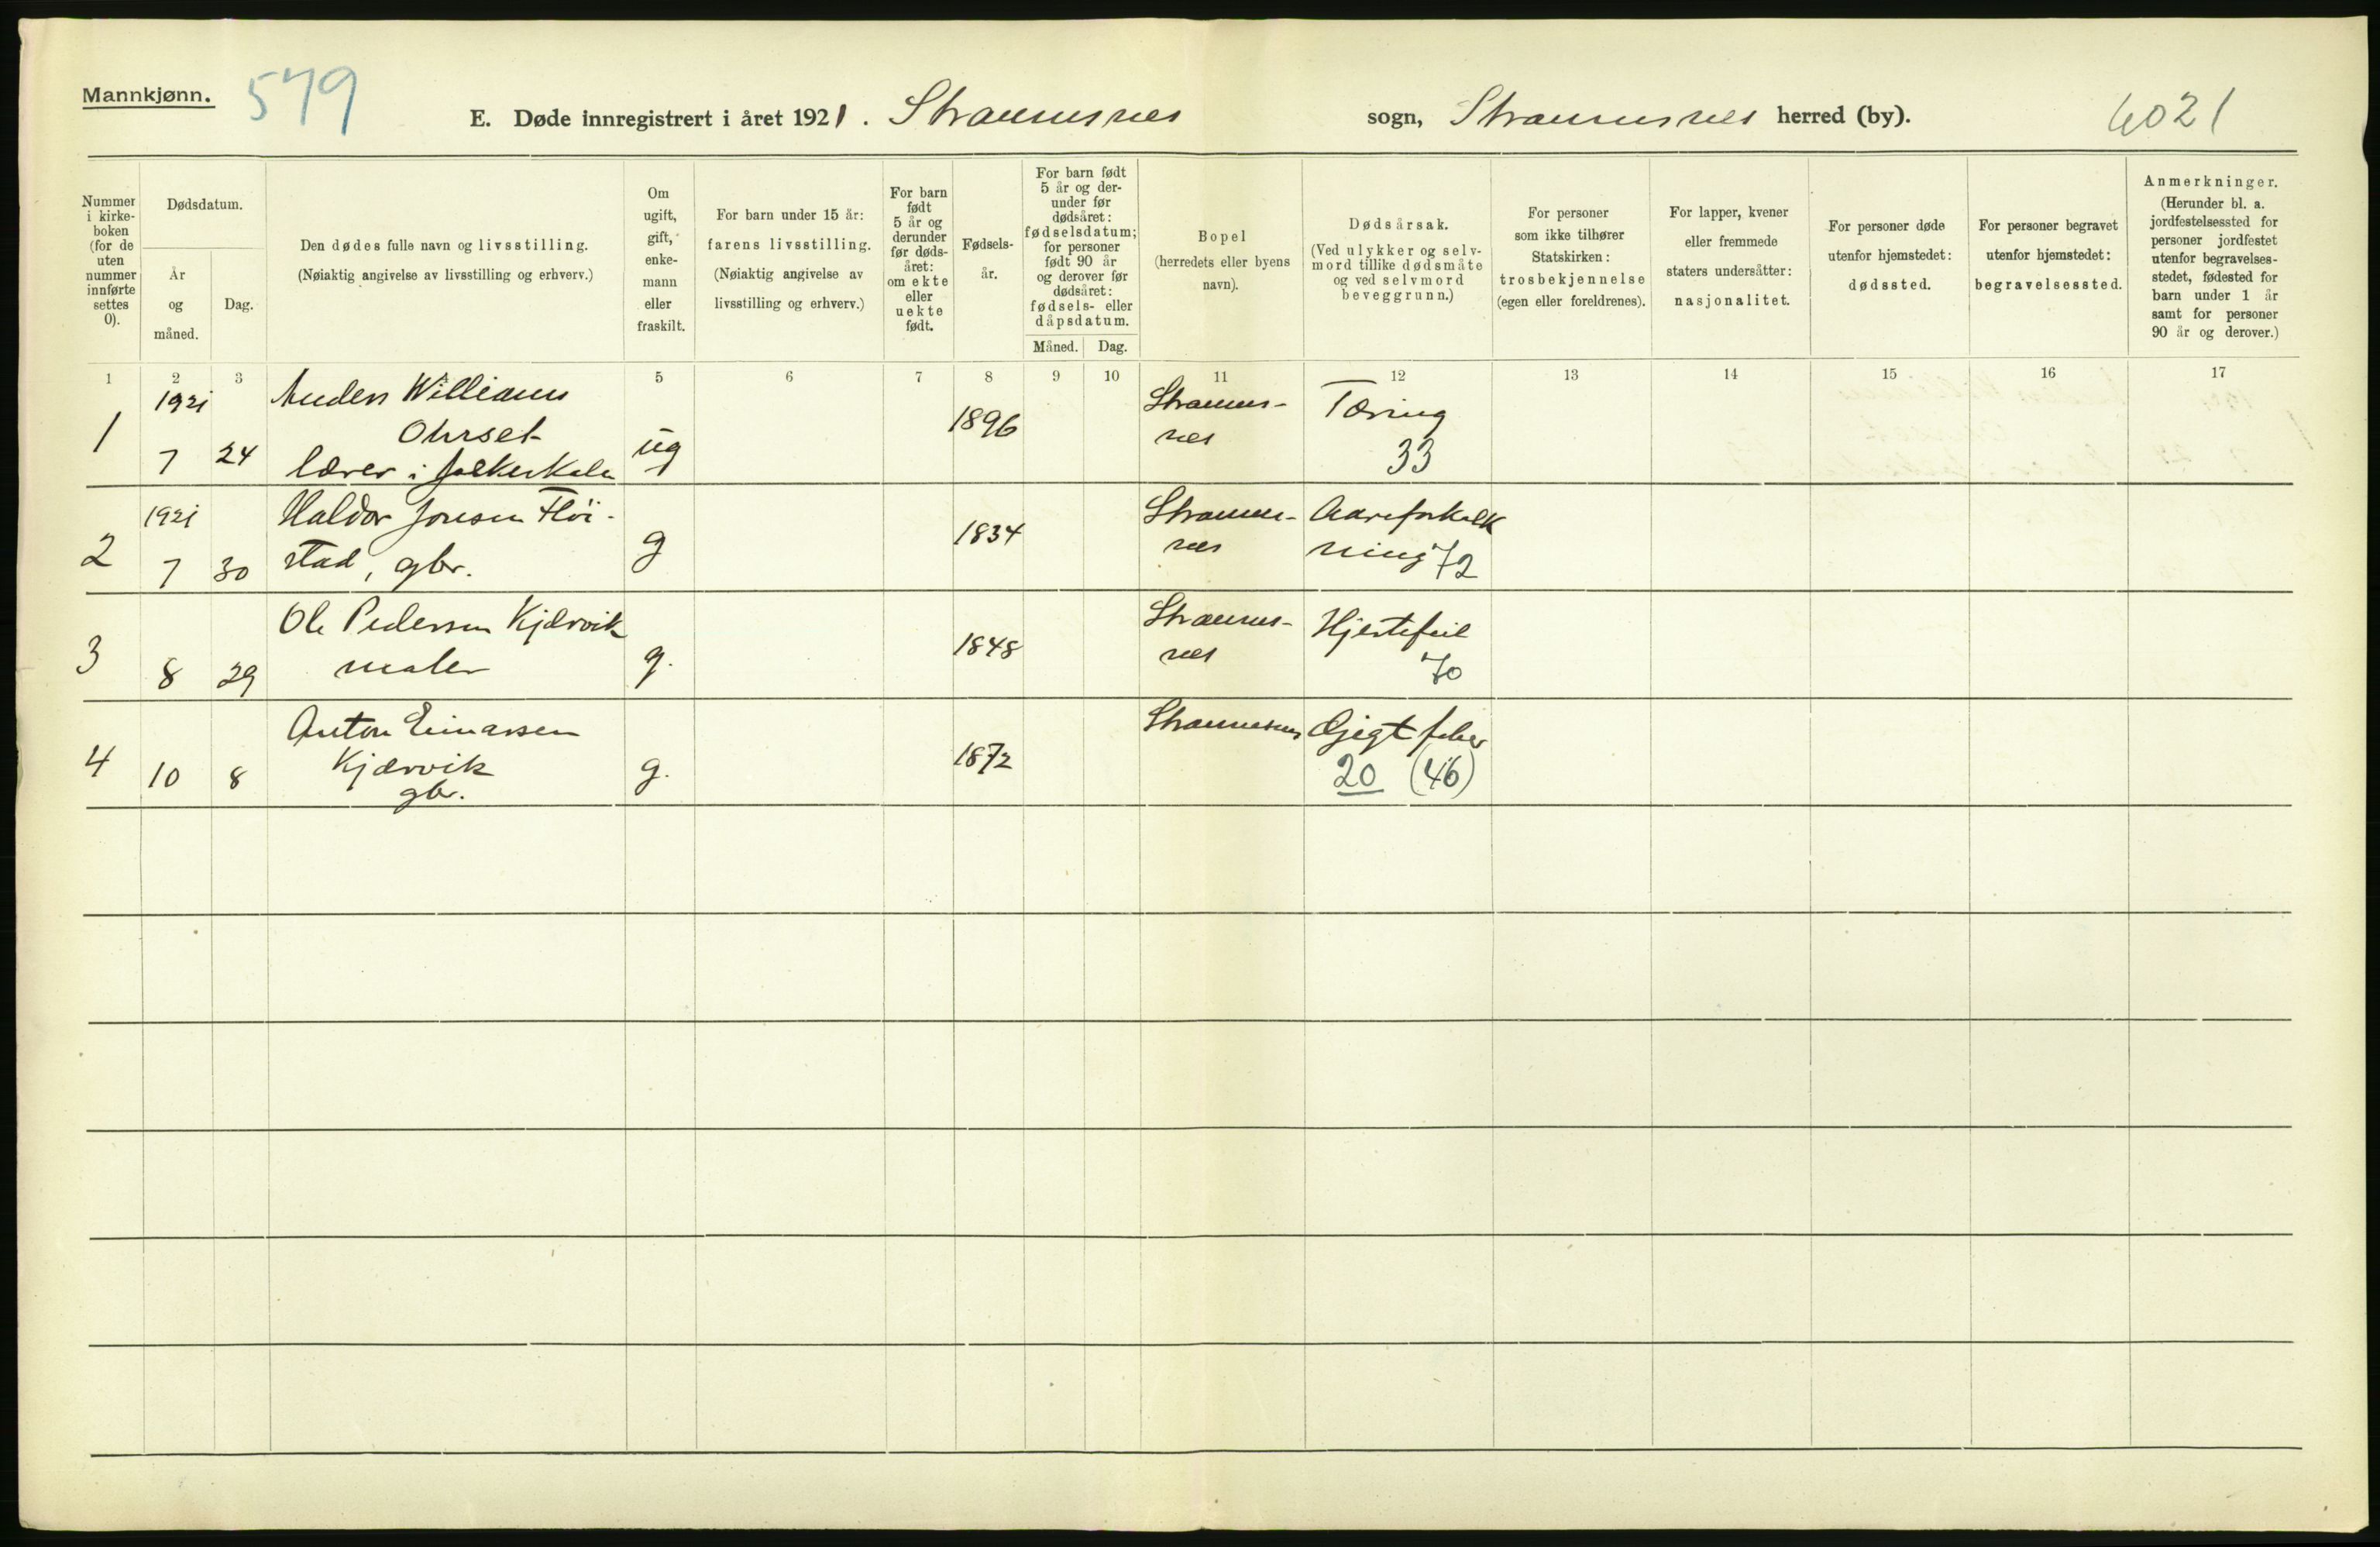 Mannkjønn.
579
E. Døde innregistrert i året 1921. Straumsnes sogn, Straumsnes herred (by).
4021
Nummer i kirke- boken (for de uten nummer innførte settes 0).
Dødsdatum.
År og måned.
Dag.
Den dødes fulle navn og livsstilling.
(Nøiaktig angivelse av livsstilling og erhverv.)
Om ugift, gift, enke- mann eller fraskilt.
For barn under 15 år:
farens livsstilling.
(Nøiaktig angivelse av
livsstilling og erhverv.)
For barn født 5 år og derunder før døds- året: om ekte eller uekte født.
Fødsels- år.
For barn født 5 år og der- under før dødsåret: fødselsdatum; for personer født 90 år og derover før dødsåret: fødsels- eller dåpsdatum.
Måned.
Dag.
Bopel
(herredets eller byens
navn).
Dødsårsak.
(Ved ulykker og selv-
mord tillike dødsmåte
og ved selvmord
beveggrunn.)
For personer
som ikke tilhører
Statskirken:
trosbekjennelse
(egen eller foreldrenes).
For lapper, kvener
eller fremmede
staters undersåtter:
nasjonalitet.
For personer døde
utenfor hjemstedet:
dødssted.
For personer begravet
utenfor hjemstedet:
begravelsessted.
Anmerkninger.
(Herunder bl. a.
jordfestelsessted for
personer jordfestet
utenfor begravelses-
stedet, fødested for
barn under 1 år
samt for personer
90 år og derover.)
1 2 3 5 6 7 8 9 10 11 12 13 14 15 16 17
1 1921 7 24 Anders Williams
lærer i folkeskolen
ug 1896 Straums-
nes
Tæring
33
2 1921 7 30 Haldor Jonsen Flöi-
stad, gbr.
g 1834 Straums-
nes
Aareforkalk
ning 72
3 8 29 Ole Pedersen Kjærvik
maler
g. 1848 Straums-
nes
Hjertefeil
70
4 10 8 Anton Einarsen
Kjærvik
gbr.
g. 1872 Straumsnes Gigtfeber
20 (46)